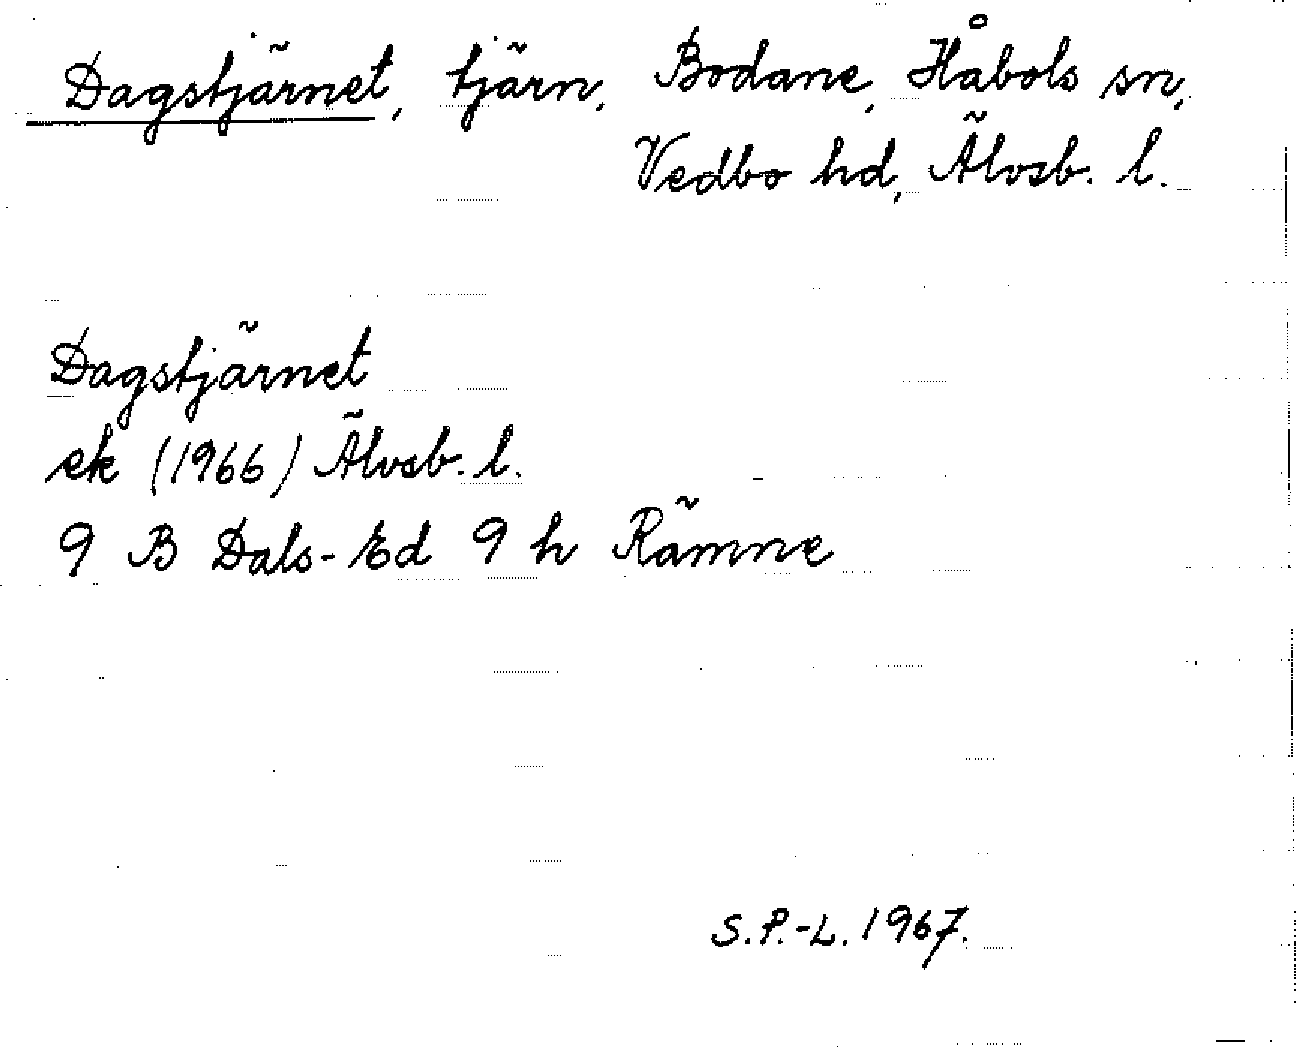 Dagstjärnet, tjärn, Bodane, Håbols sn,
Vedbo hd, Älvsb. l.
Dagstjärnet
ek (1966) Älvsb. l.
9 B Dals-Ed 9 h Rämne
S.P.-L. 1967.